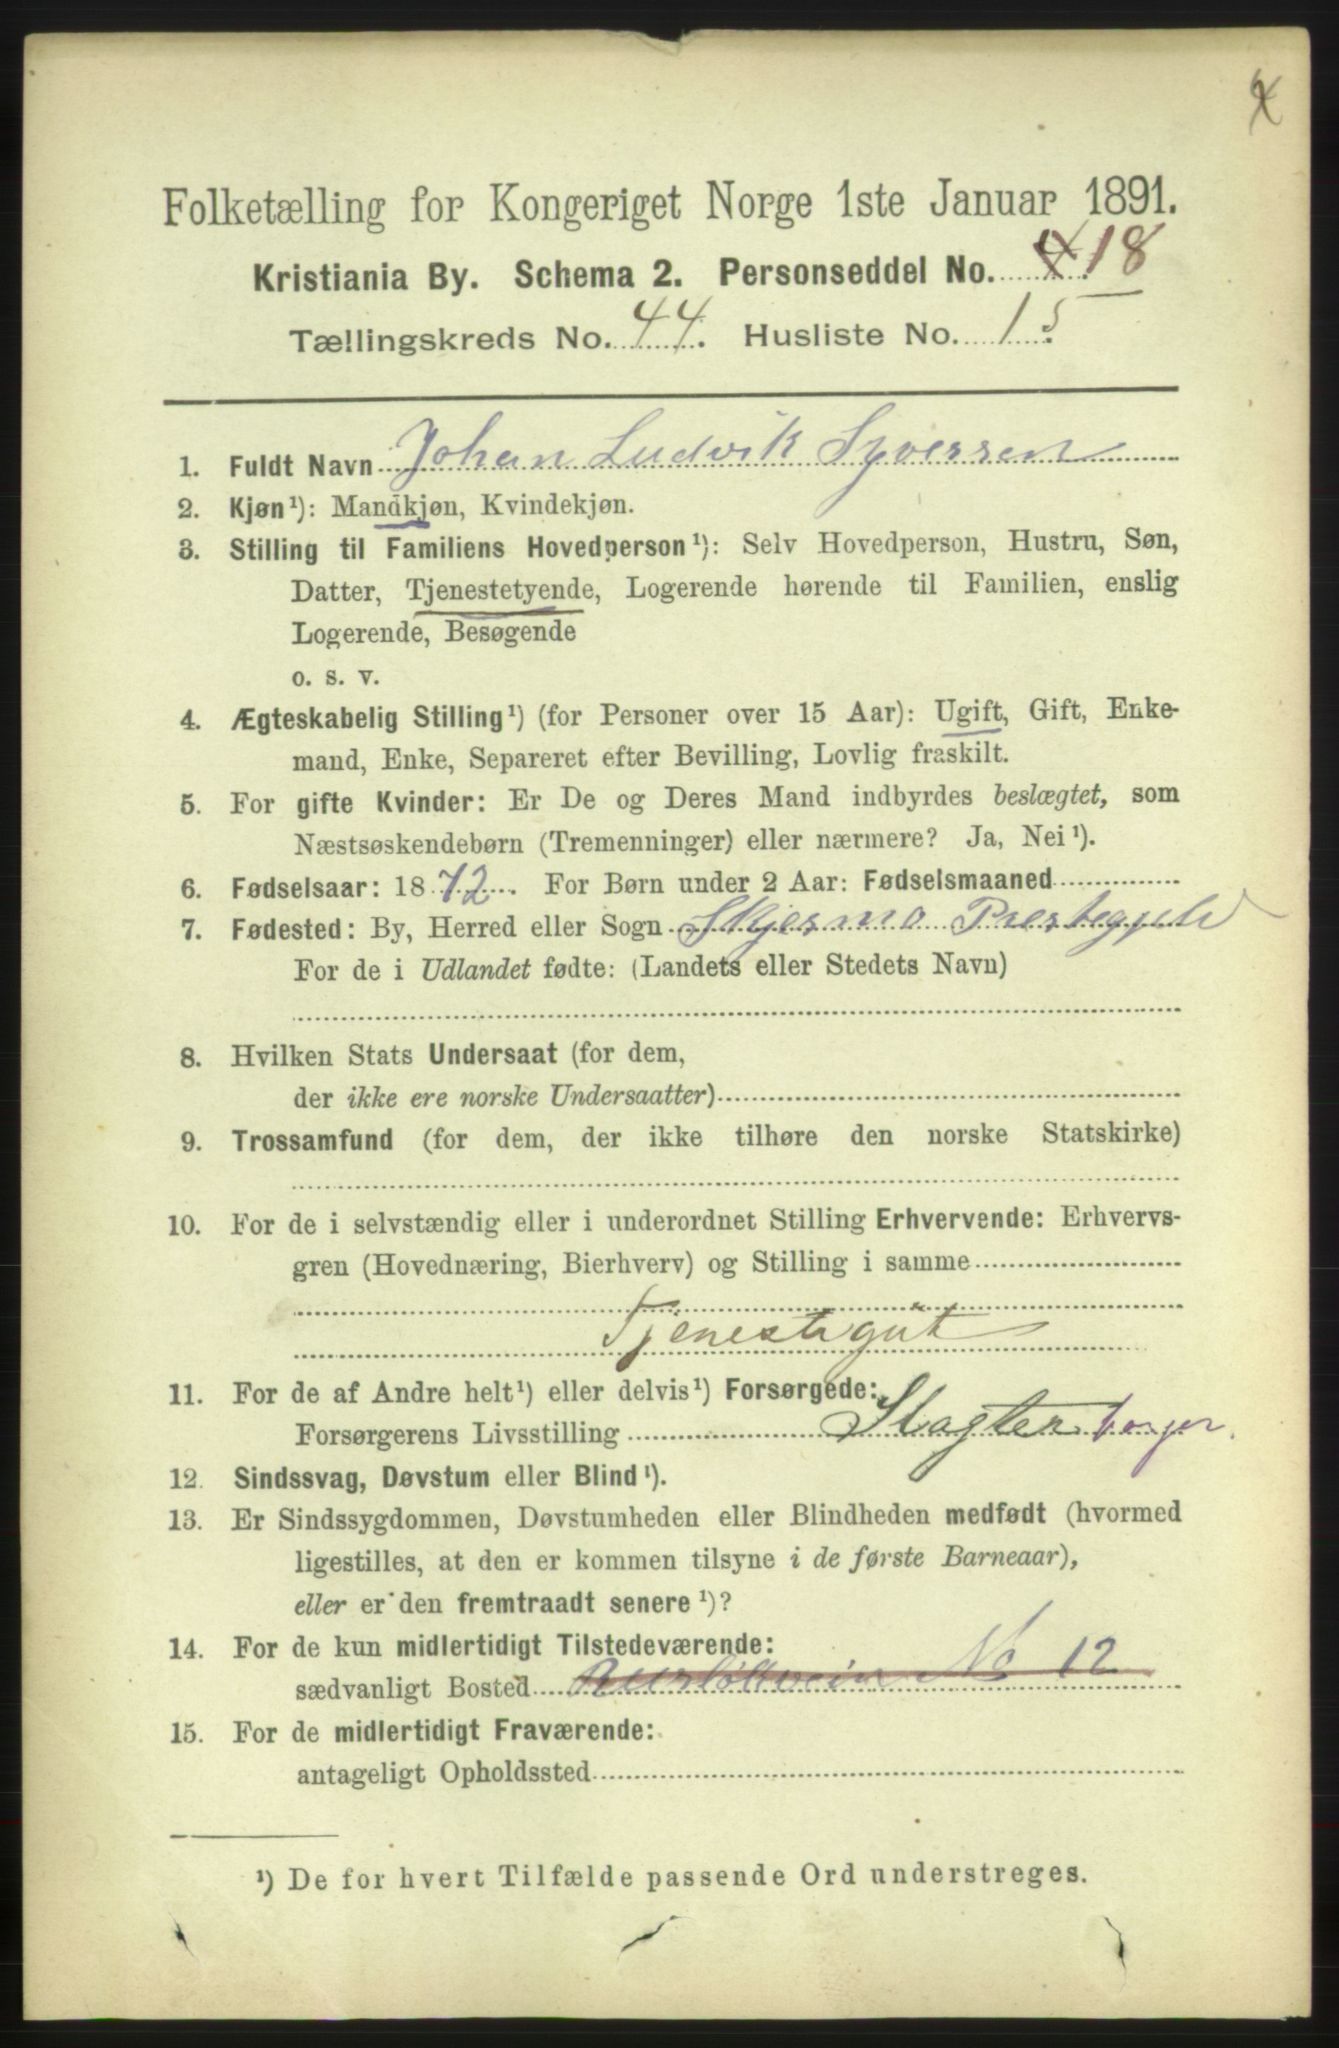 Folketælling for Kongeriget Norge 1ste Januar 1891.
Kristiania By. Schema 2. Personseddel No. 18
Tællingskreds No. 44. Husliste No. 15.
1. Fuldt Navn Johan Ludvik Syversen
2. Kjøn ¹): Mandkjøn, Kvindekjøn.
3. Stilling til Familiens Hovedperson ¹): Selv Hovedperson, Hustru, Søn,
Datter, Tjenestetyende, Logerende hørende til Familien, enslig
Logerende, Besøgende
o. s. v.
4. Ægteskabelig Stilling ¹) (for Personer over 15 Aar): Ugift, Gift, Enke-
mand, Enke, Separeret efter Bevilling, Lovlig fraskilt.
5. For gifte Kvinder: Er De og Deres Mand indbyrdes beslægtet, som
Næstsøskendebørn (Tremenninger) eller nærmere? Ja, Nei ¹).
6. Fødselsaar: 1872. For Børn under 2 Aar: Fødselsmaaned
7. Fødested: By, Herred eller Sogn Skjesmo Prestegjeld
For de i Udlandet fødte: (Landets eller Stedets Navn)
8. Hvilken Stats Undersaat (for dem,
der ikke ere norske Undersaatter)
9. Trossamfund (for dem, der ikke tilhøre den norske Statskirke)
10. For de i selvstændig eller i underordnet Stilling Erhvervende: Erhvervs-
gren (Hovednæring, Bierhverv) og Stilling i samme
Tjenestegut
11. For de af Andre helt ¹) eller delvis ¹) Forsørgede:
Forsørgerens Livsstilling Slagter borger.
12. Sindssvag, Døvstum eller Blind ¹).
13. Er Sindssygdommen, Døvstumheden eller Blindheden medfødt (hvormed
ligestilles, at den er kommen tilsyne i de første Barneaar),
eller er den fremtraadt senere ¹)?
14. For de kun midlertidigt Tilstedeværende:
sædvanligt Bosted No 12
15. For de midlertidigt Fraværende:
antageligt Opholdssted
¹) De for hvert Tilfælde passende Ord understreges.